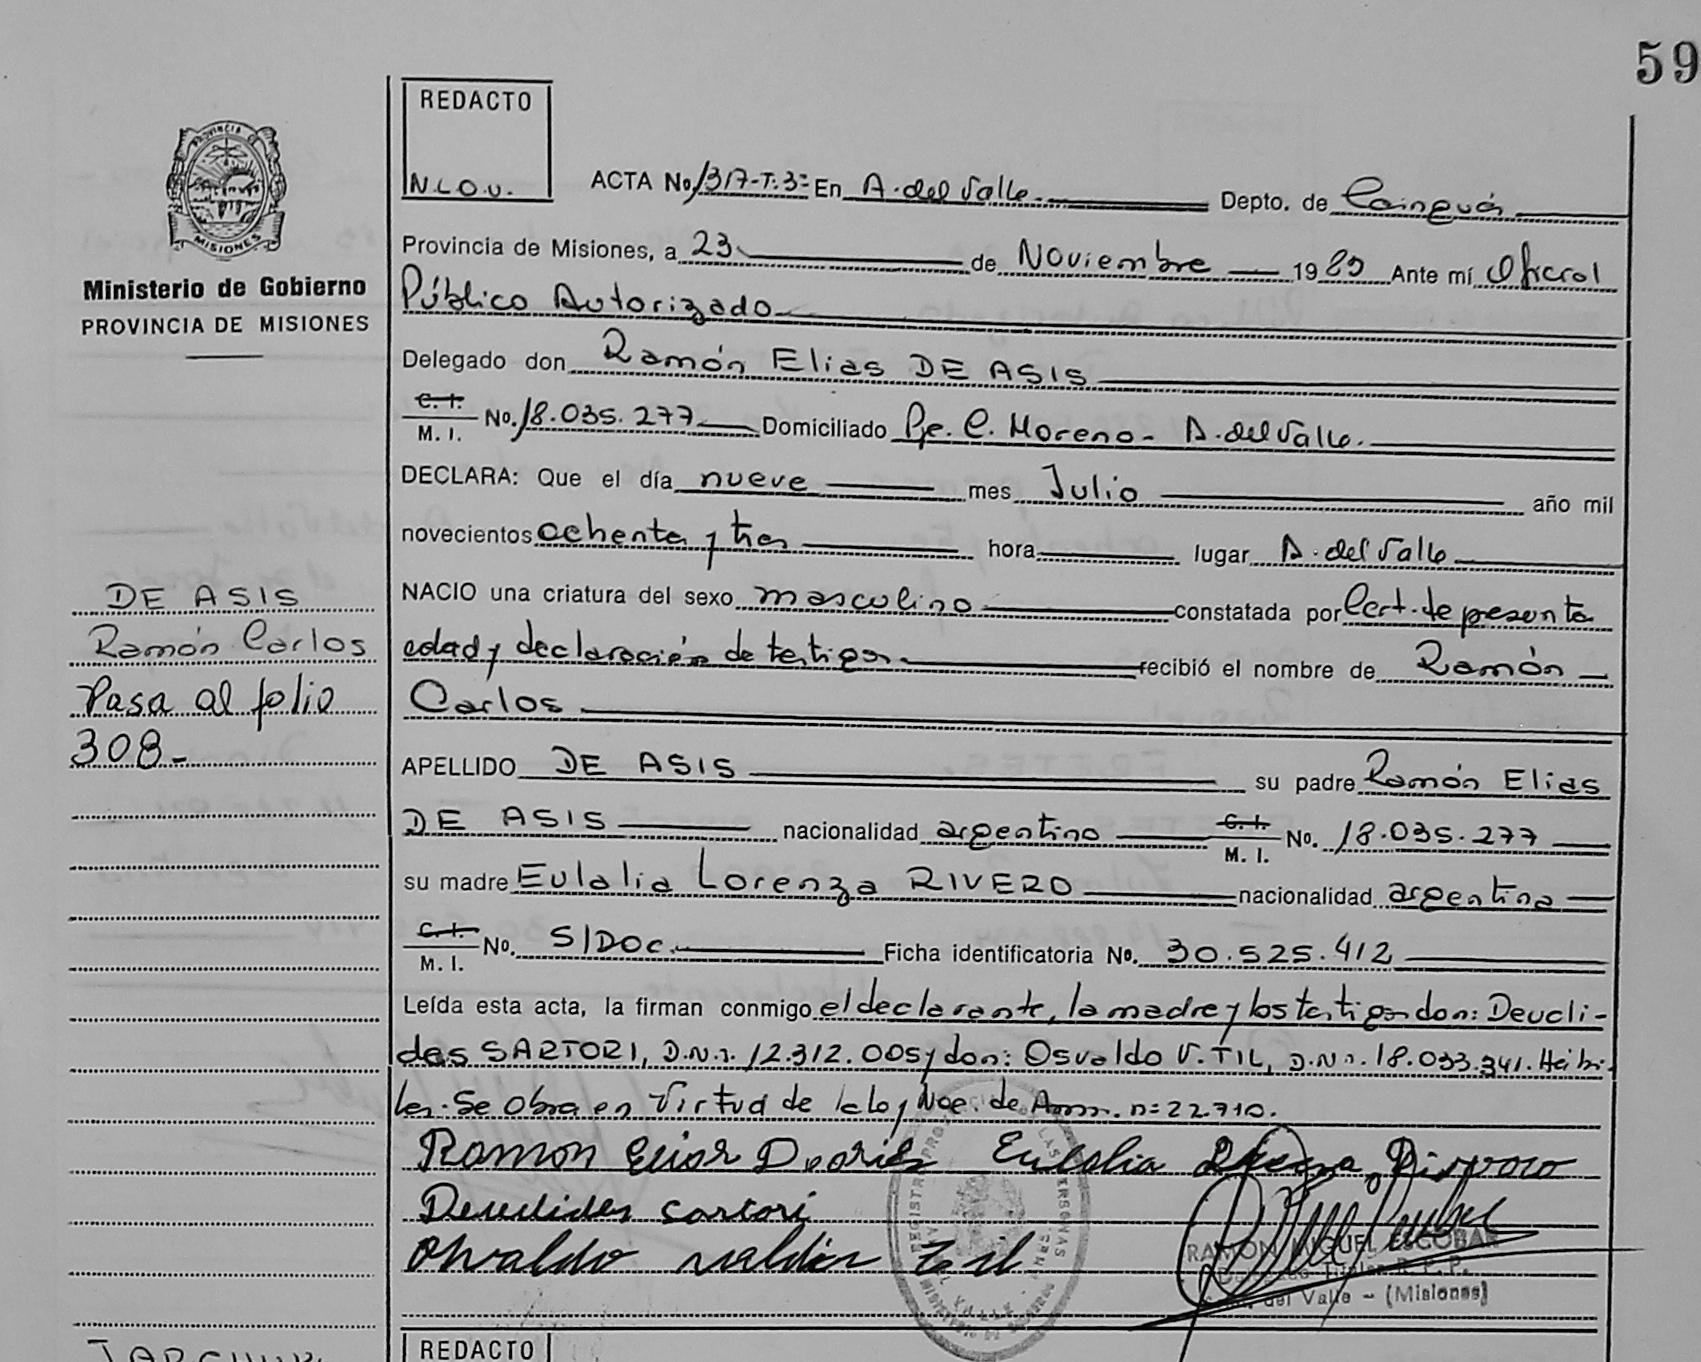 59
REDACTO
N.L.O.V.
PROVINCIA DE
MISIONES
Ministerio de Gobierno
PROVINCIA DE MISIONES
ACTA No. 1317-T.3= En A. del Valle. Depto. de Cainguás
Provincia de Misiones, a 23 de Noviembre 1989 Ante mí Oficial
Público Autorizado
Delegado don Ramón Elias DE ASIS
C. I. M. I. No. 18.035.277 Domiciliado Pje. C. Moreno - A. del Valle.
DECLARA: Que el día nueve mes Julio año mil
novecientos ochenta y tres hora lugar A. del Valle
NACIO una criatura del sexo masculino constatada por Cert. de presunta
edad y declaración de testigos. recibió el nombre de Ramón
Carlos
APELLIDO DE ASIS su padre Ramón Elias
DE ASIS nacionalidad argentino C. I. M. I. No. 18.035.277
su madre Eulalia Lorenza RIVERO nacionalidad argentina
C. I. M. I. No. S/Doc. Ficha identificatoria No. 30.525.412
Leída esta acta, la firman conmigo el declarante, la madre y los testigos don: Deucli-
des SARTORI, D.N.I. 12.312.005 y don: Osvaldo V. TIL, D.N.I. 18.033.341. Hábi-
les. Se obra en Virtud de la Ley Nac. de Amn. n= 22.710.
DE ASIS
Ramón Carlos
Pasa al folio
308-
Ramon Elias Deasis Eulalia
Deuclides sartori
Osvaldo valdir
RAMON MIGUEL ESCOBAR
Delegado Titular R. P. P.
del Valle - (Misiones)
REDACTO